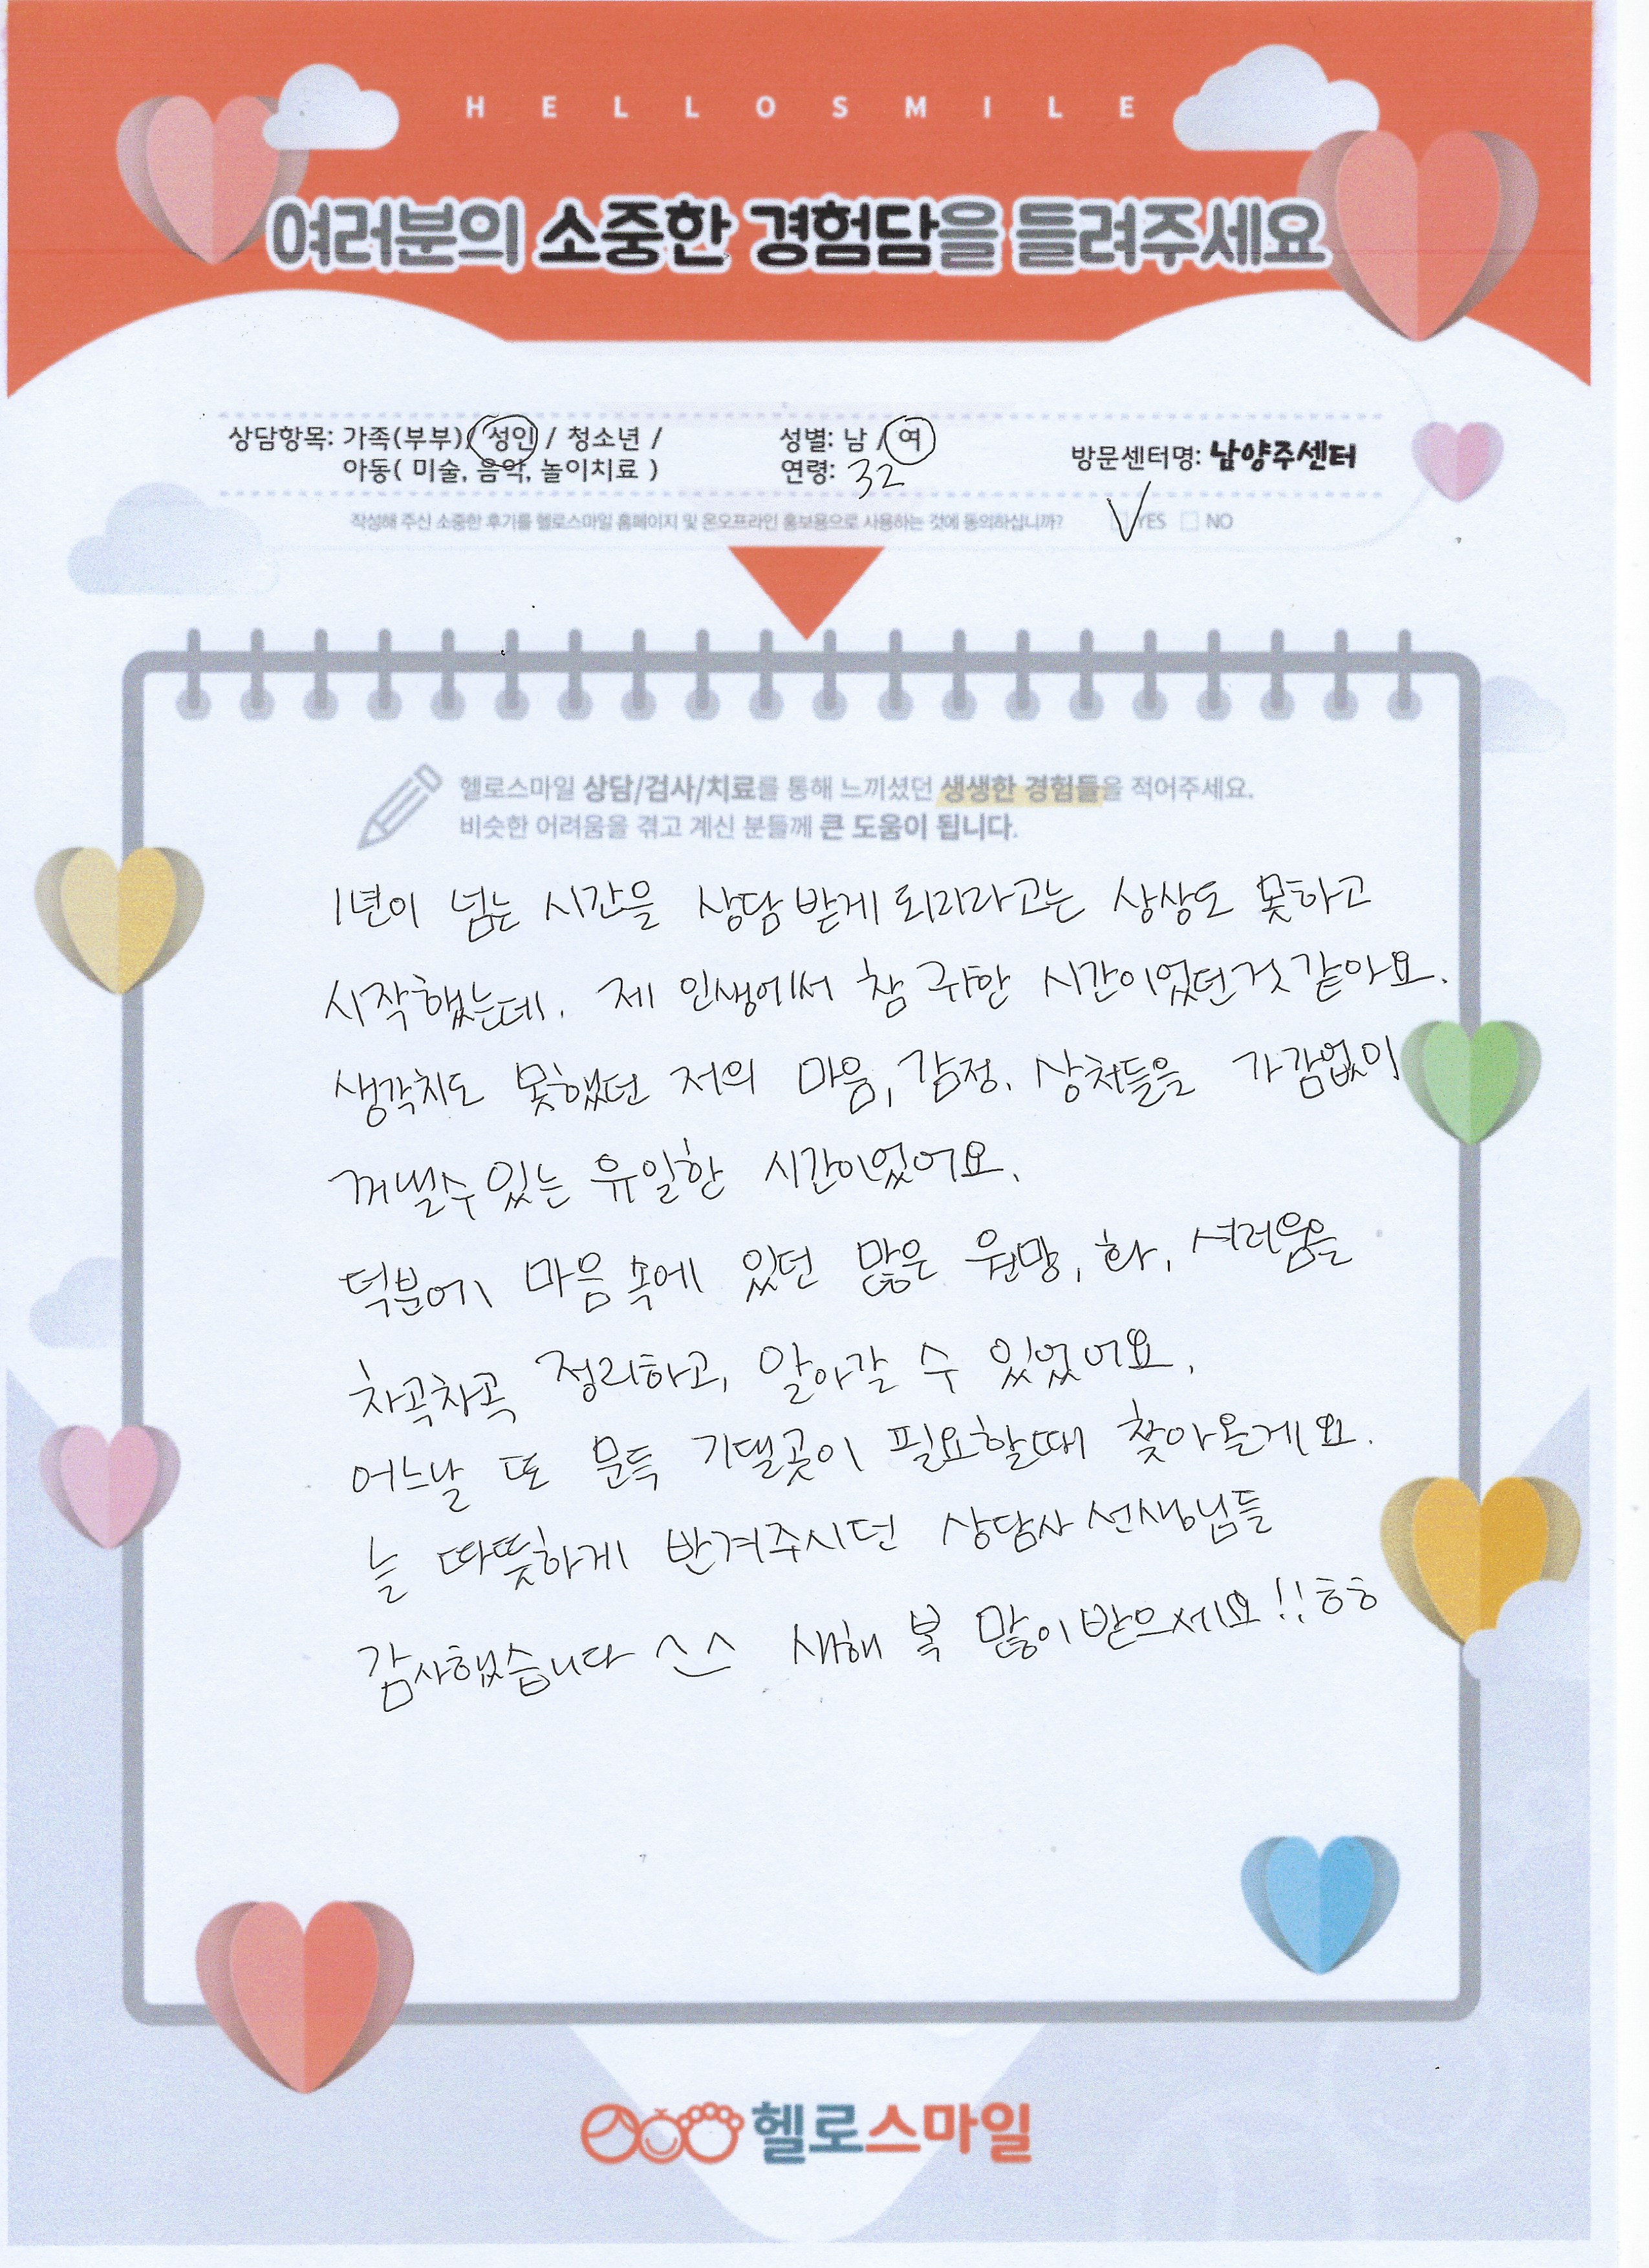 HELLOSMILE
여러분의 소중한 경험담을 들려주세요
상담항목: 가족(부부)/ 성인 / 청소년 /
아동( 미술, 음악, 놀이치료 )
성별: 남 / 여
연령: 32
방문센터명: 남양주센터
작성해 주신 소중한 후기를 헬로스마일 홈페이지 및 온오프라인 홍보용으로 사용하는 것에 동의하십니까? YES NO
헬로스마일 상담/검사/치료를 통해 느끼셨던 생생한 경험들을 적어주세요.
비슷한 어려움을 겪고 계신 분들께 큰 도움이 됩니다.
1년이 넘는 시간을 상담 받게 되리라고는 상상도 못하고
시작했는데. 제 인생에서 참 귀한 시간이었던것 같아요.
생각치도 못했던 저의 마음, 감정, 상처들을 가감없이
꺼낼수 있는 유일한 시간이었어요.
덕분에 마음속에 있던 많은 원망, 화, 서러움을
차곡차곡 정리하고, 알아갈 수 있었어요.
어느날 또 문득 기댈곳이 필요할때 찾아올게요.
늘 따뜻하게 반겨주시던 상담사 선생님들
감사했습니다 ^_^ 새해 복 많이 받으세요!! ㅎㅎ
헬로스마일